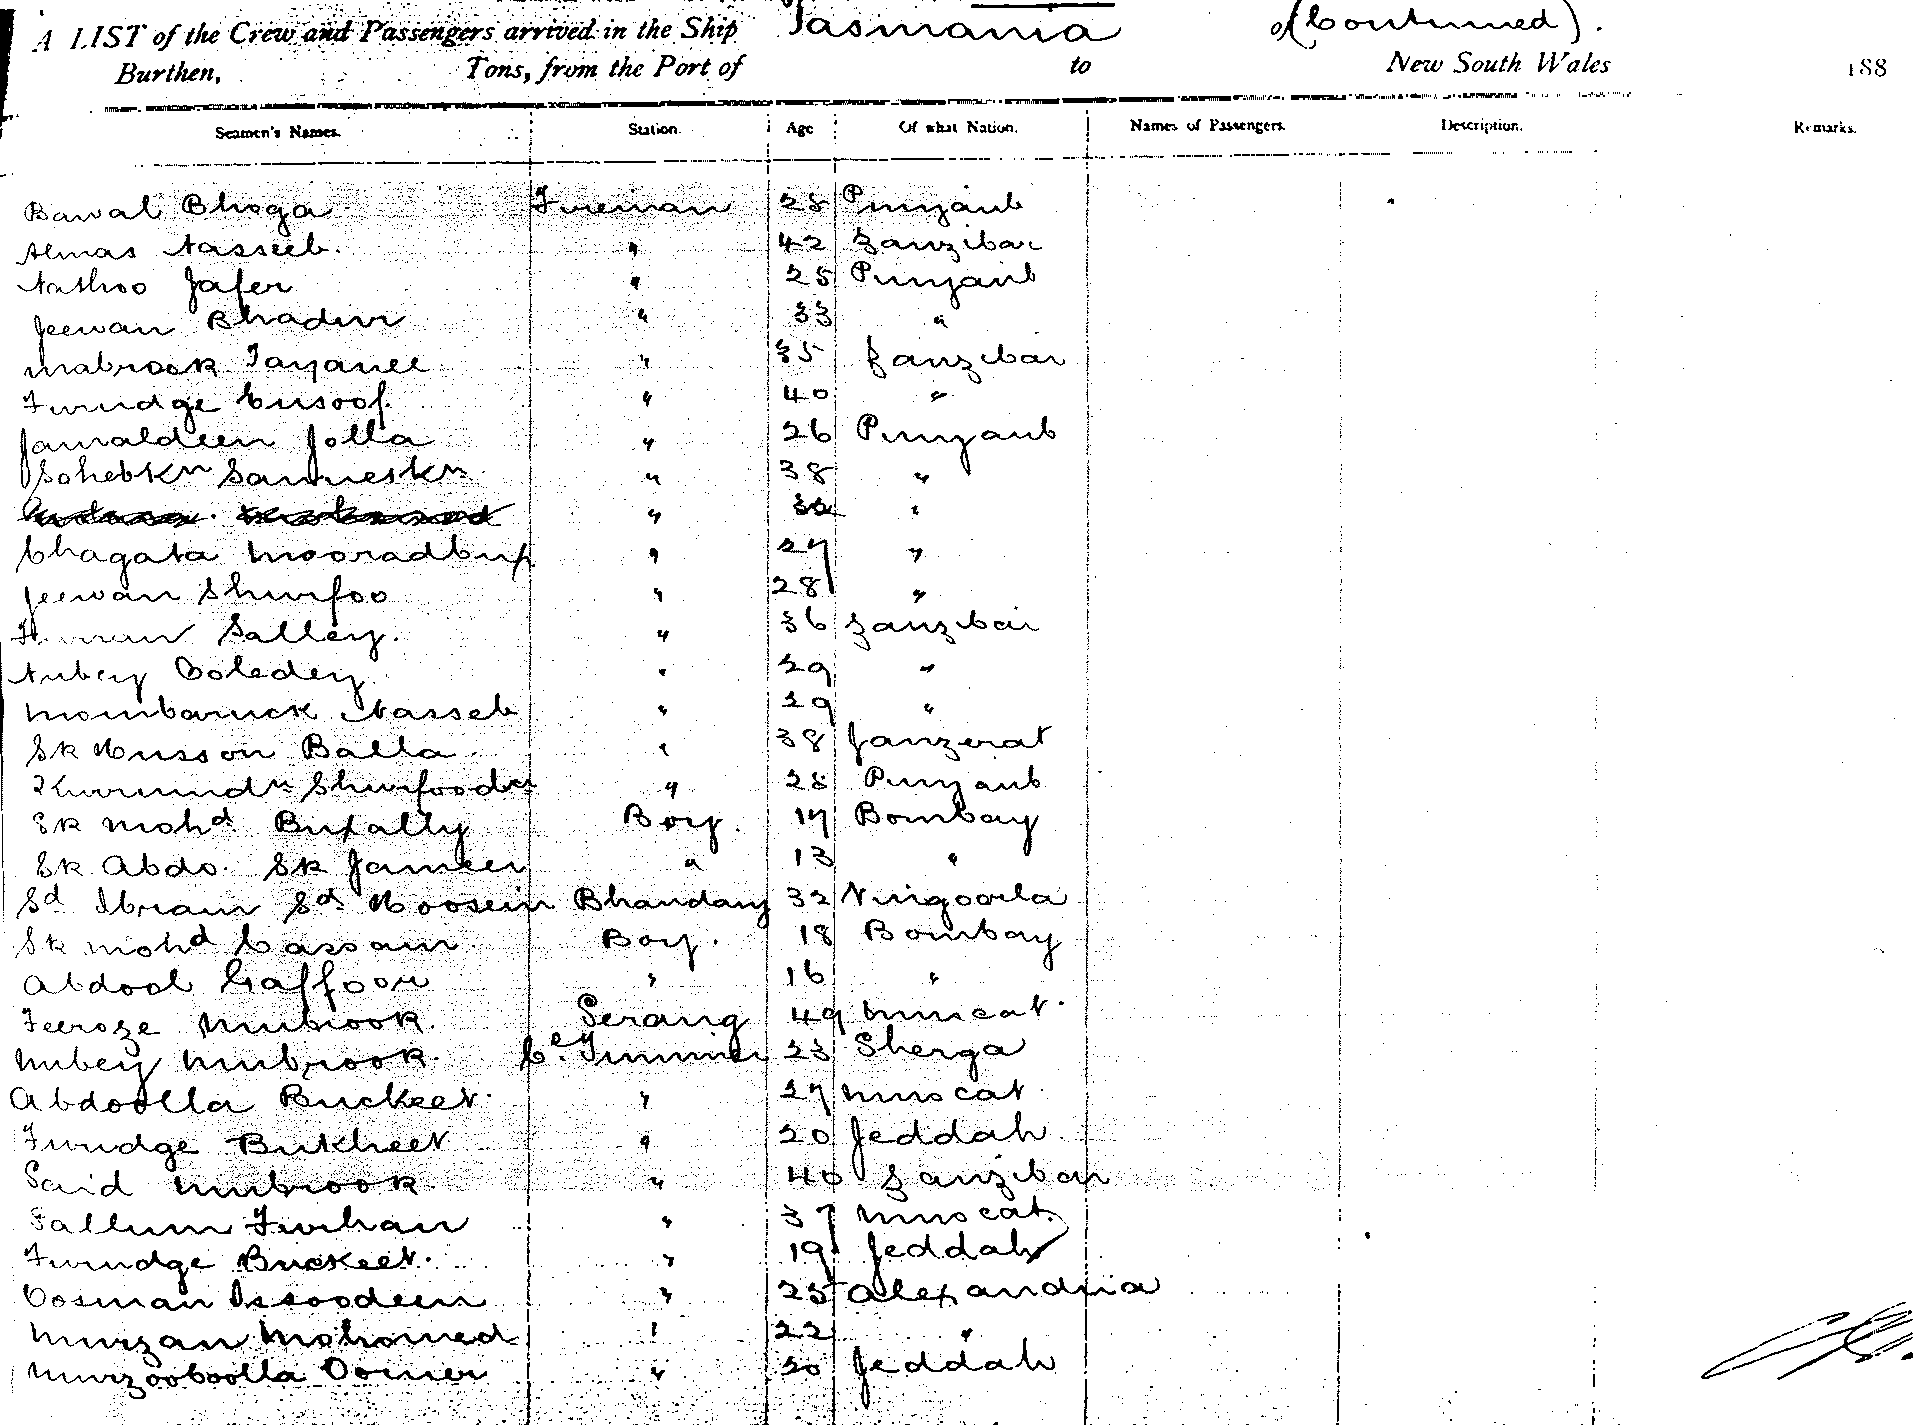 A LIST of the Crew and Passengers arrived in the Ship Tasmania of (Continued).
Burthen, Tons, from the Port of to New South Wales 188
Seamen's Names. Station. Age Of what Nation. Names of Passengers. Description. Remarks.
Bawal Bhoga Fireman 28 Punjaub
Almas Nasseeb. " 42 Zanzibar
Nathoo Jafer " 25 Punjaub
Jeewan Bhadur " 33 "
Mabrook Tayanee " 35 Zanzibar
Furudge Eusoof. " 40 "
Jamaldeen Jolla " 26 Punjaub
Sohebkn Sanneskn " 38 "
" "
Chagata Mooradbux " 27 "
Jeewan Shurfoo " 28 "
Salley. " 36 Zanzibar
Nubey Coledey " 29 "
Mombaruck Nasseb " 29 "
Sk Husson Balla " 38 Janzerat
Shurfoodn " 28 Punjaub
Sk Mohd Buxally Boy. 17 Bombay
Sk Abdo. Sk Jameer " 13 "
Sd Ibram Sd Hoosein Bhandary 32 Vingoorla
Sk Mohd Cassam Boy. 18 Bombay
Abdool Gaffoor " 16 "
Feeroze Mubrook. Serang 49 Muscat.
Nubey Mubrook. Cey Trimmer 23 Sherga
Abdoolla Buckeet. " 27 Muscat
Furudge Bukheet " 20 Jeddah
Said Mubrook. " 40 Zanzibar
Sallum Furhan " 37 Muscat.
Furudge Buckeet. " 19 Jeddah
Oosman Issoodeen " 25 Alexandria
Murzan Mohomed " 22 "
Murzooboolla Oomer " 20 Jeddah